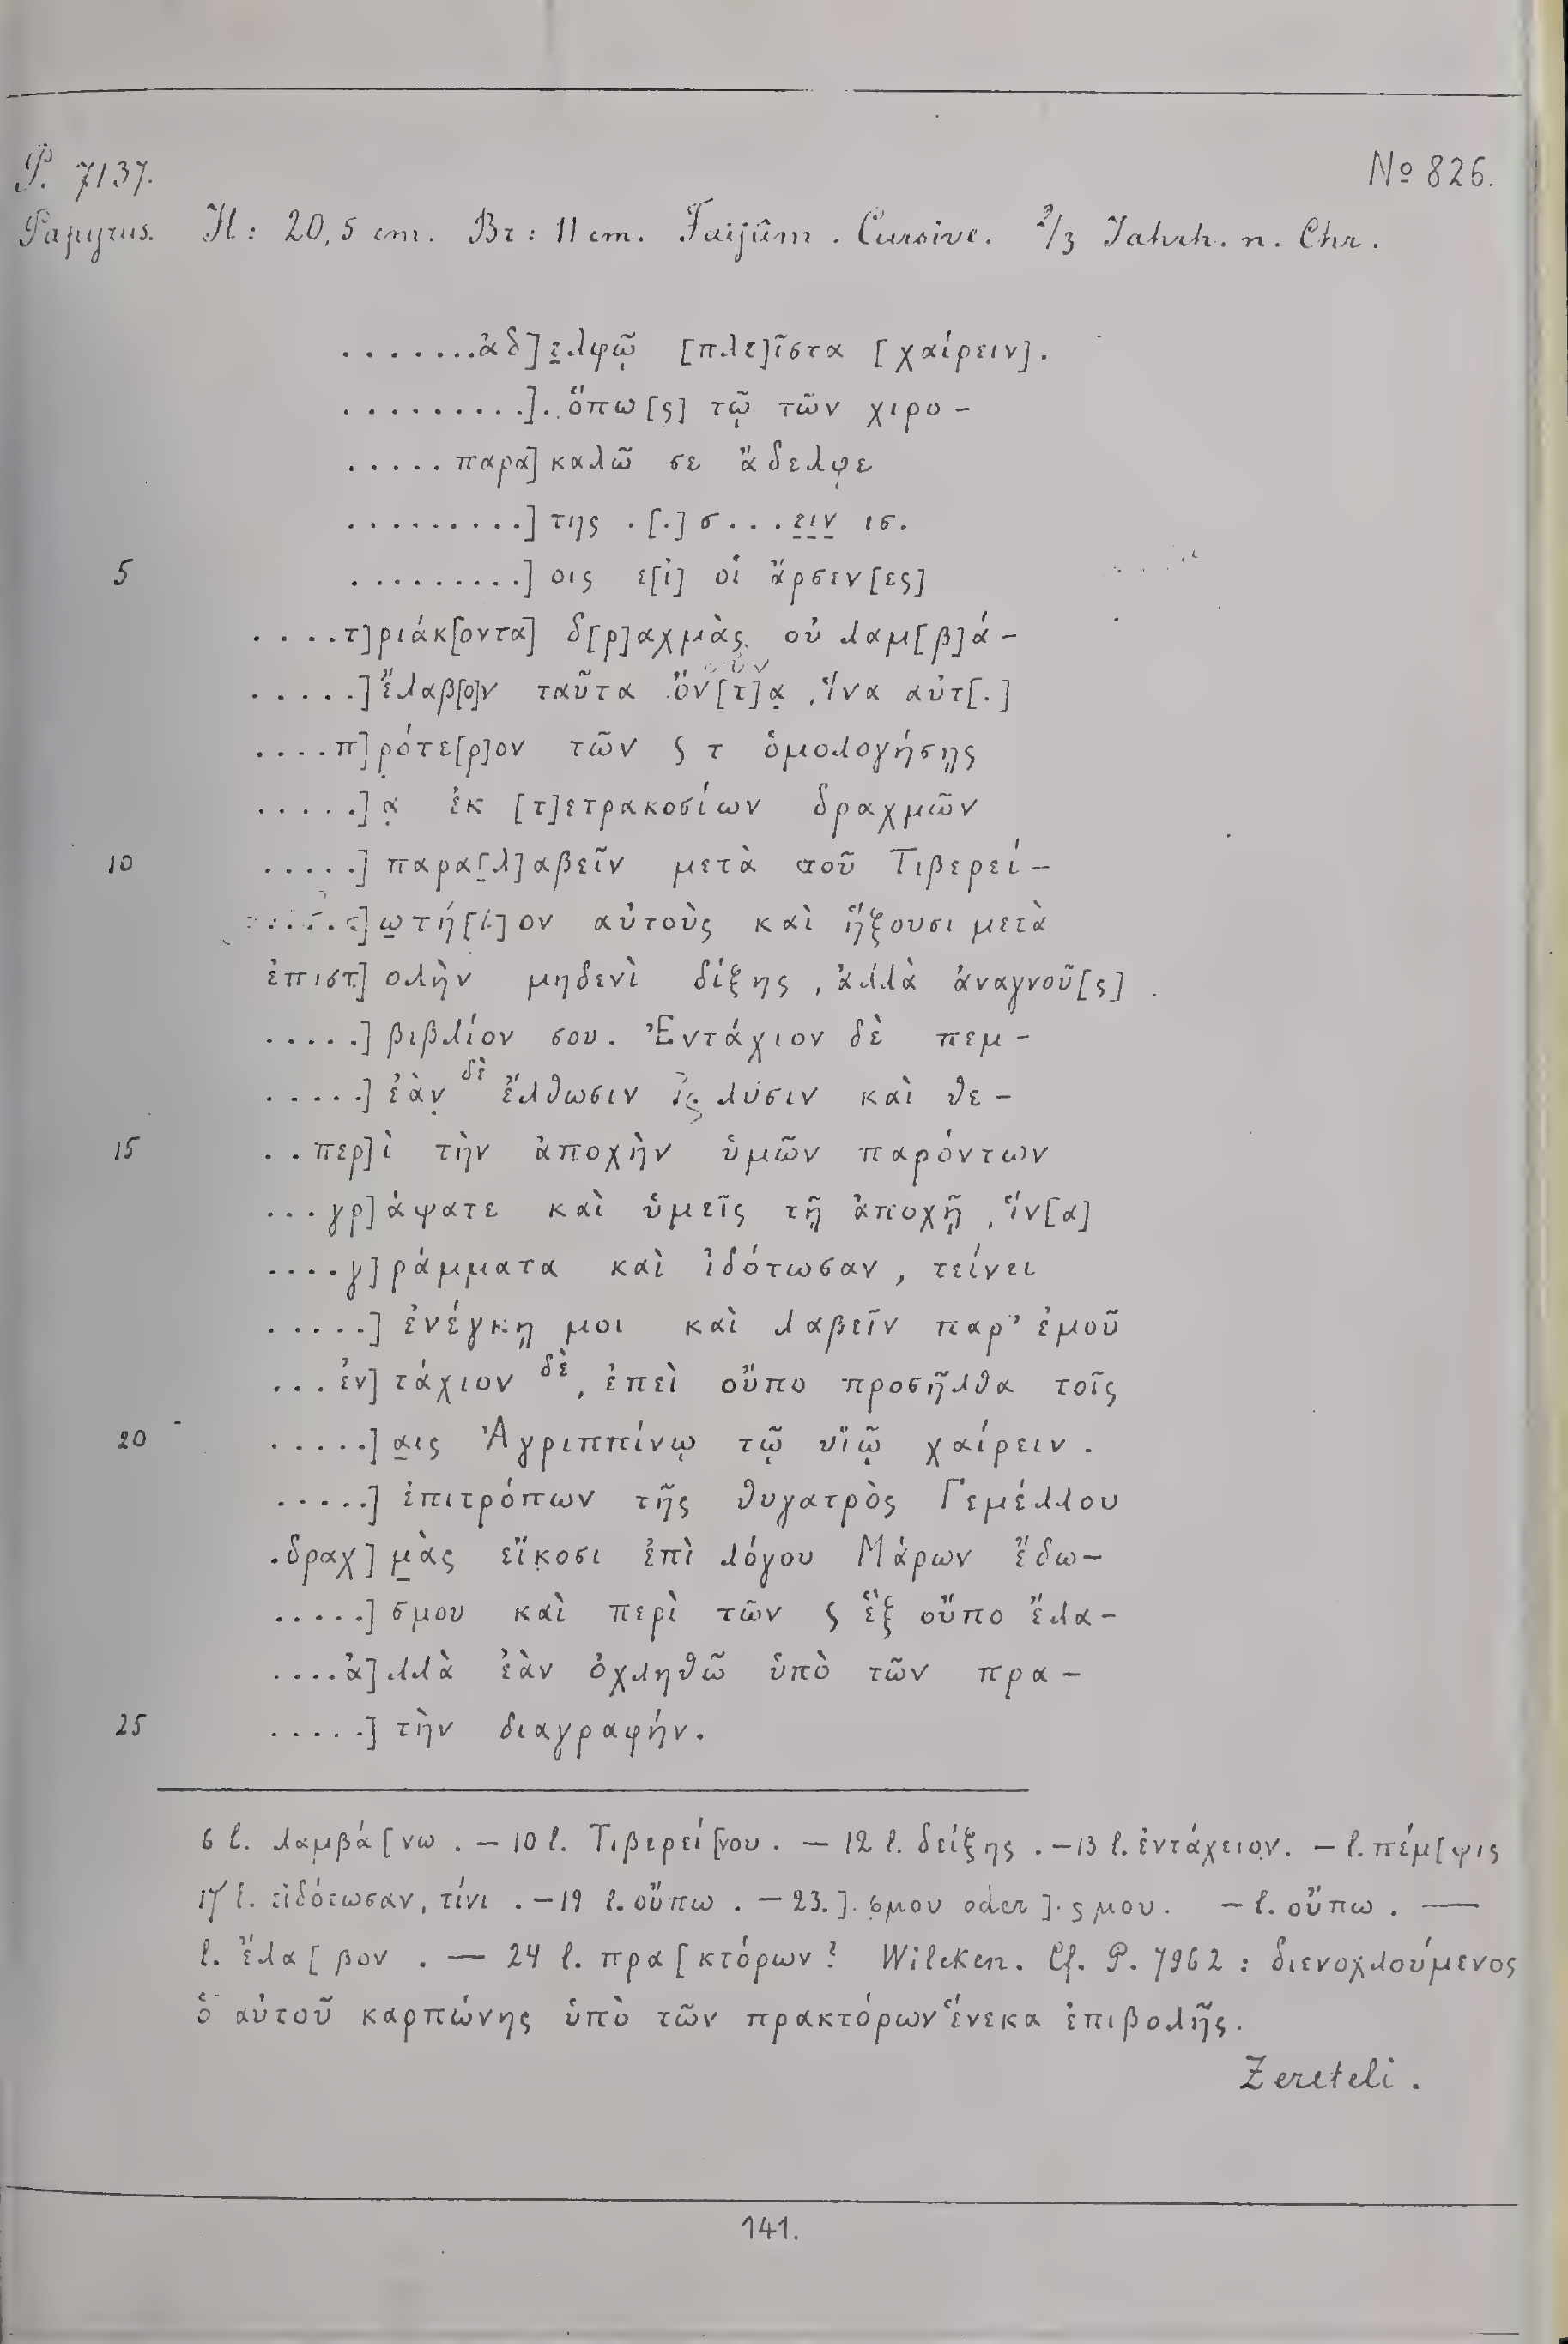 P. 7137.
No 826.
Papyrus. H: 20,5 cm. Br: 11 cm. Faijûm. Cursive. 2/3 Jahrh. n. Chr.
.......ἀδ]ε̲λφῷ [πλε]ῖστα [χαίρειν].
.........]. ὅπω[ς] τῷ τῶν χιρο-
.....παρα]καλῶ σε ἄδελφε
.........]της .[.]σ...ειν ισ.
5 .........]οις ε[ἰ] οἱ ἄρσεν[ες]
....τ]ριάκ[οντα] δ[ρ]αχμὰς οὐ λαμ[β]ά-
.....]ἔλαβ[ο]ν ταῦτα ὄν[τ]α̣, ἵνα αὐτ[.]
....π]ρότε[ρ]ον τῶν ς τ ὁμολογήσῃς
.....]α̣ ἐκ [τ]ετρακοσίων δραχμῶν
10 .....]παρα[λ]αβεῖν μετὰ τοῦ Τιβερεί-
]ω̲τή[.]ον αὐτοὺς καὶ ἥξουσι μετὰ
ἐπιστ]ολὴν μηδενὶ δίξης, ἀλλὰ ἀναγνοῦ[ς]
.....]βιβλίον σου. Ἐντάχιον δὲ πεμ-
.....]ἐὰν δὲ ἔλθωσιν ἰς λύσιν καὶ θε-
15 ..περ]ὶ τὴν ἀποχὴν ὑμῶν παρόντων
...γρ]άψατε καὶ ὑμεῖς τῇ ἀποχῇ, ἵν[α]
....γ]ράμματα καὶ ἰδότωσαν, τείνει
.....]ἐνέγκῃ μοι καὶ λαβεῖν παρ’ ἐμοῦ
...ἐν]τάχιον δὲ, ἐπεὶ οὔπο προσῆλθα τοῖς
20 .....]α̲ις Ἀγριππίνῳ τῷ υἱῷ χαίρειν.
.....]ἐπιτρόπων τῆς θυγατρὸς Γεμέλλου
.δραχ]μ̲ὰς εἴκ̣οσι ἐπὶ λόγου Μάρων ἔδω-
.....]σμου καὶ περὶ τῶν ς ἓξ οὔπο ἔλα-
....ἀ]λλὰ ἐὰν ὀχληθῶ ὑπὸ τῶν πρα-
25 .....]τὴν διαγραφήν.
6 l. λαμβά[νω. — 10 l. Τιβερεί[νου. — 12 l. δείξης. — 13 l. ἐντάχειον. — l. πέμ[ψις
17 l. εἰδότωσαν, τίνι. — 19 l. οὔπω. — 23. ]. σμου oder ]. ς μου. — l. οὔπω. —
l. ἔλα[βον. — 24 l. πρα[κτόρων? Wilcken. Cf. P. 7962: διενοχλούμενος
ὁ αὐτοῦ καρπώνης ὑπὸ τῶν πρακτόρων ἕνεκα ἐπιβολῆς.
Zereteli.
141.